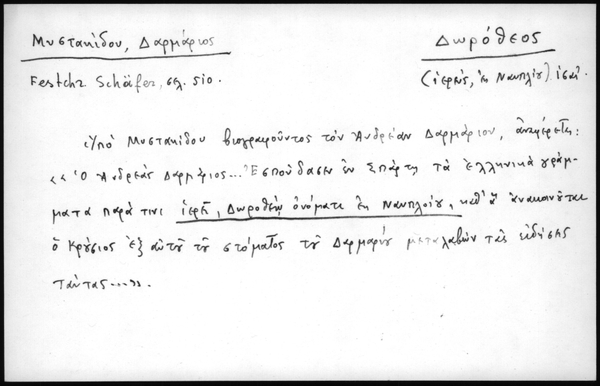 Μυστακίδου, Δαρμάριος
Δωρόθεος
Festchr Schäfer, σελ. 510.
(ἱερεύς, ἐκ Ναυπλίου)
Ὑπὸ Μυστακίδου βιογραφοῦντος τὸν Ἀνδρέαν Δαρμάριον, ἀναφέρεται:
«Ὁ Ἀνδρέας Δαρμάριος... Ἐσπούδασεν ἐν Σπάρτῃ τὰ ἑλληνικὰ γράμ-
ματα παρά τινι ἱερεῖ, Δωροθέῳ ὀνόματι ἐκ Ναυπλοίου, καθ' ἃ ἀνακοινοῦται
ὁ Κρούσιος ἐξ αὐτοῦ τοῦ στόματος τοῦ Δαρμαρίου μεταλαβὼν τὰς εἰδήσεις
ταύτας....».